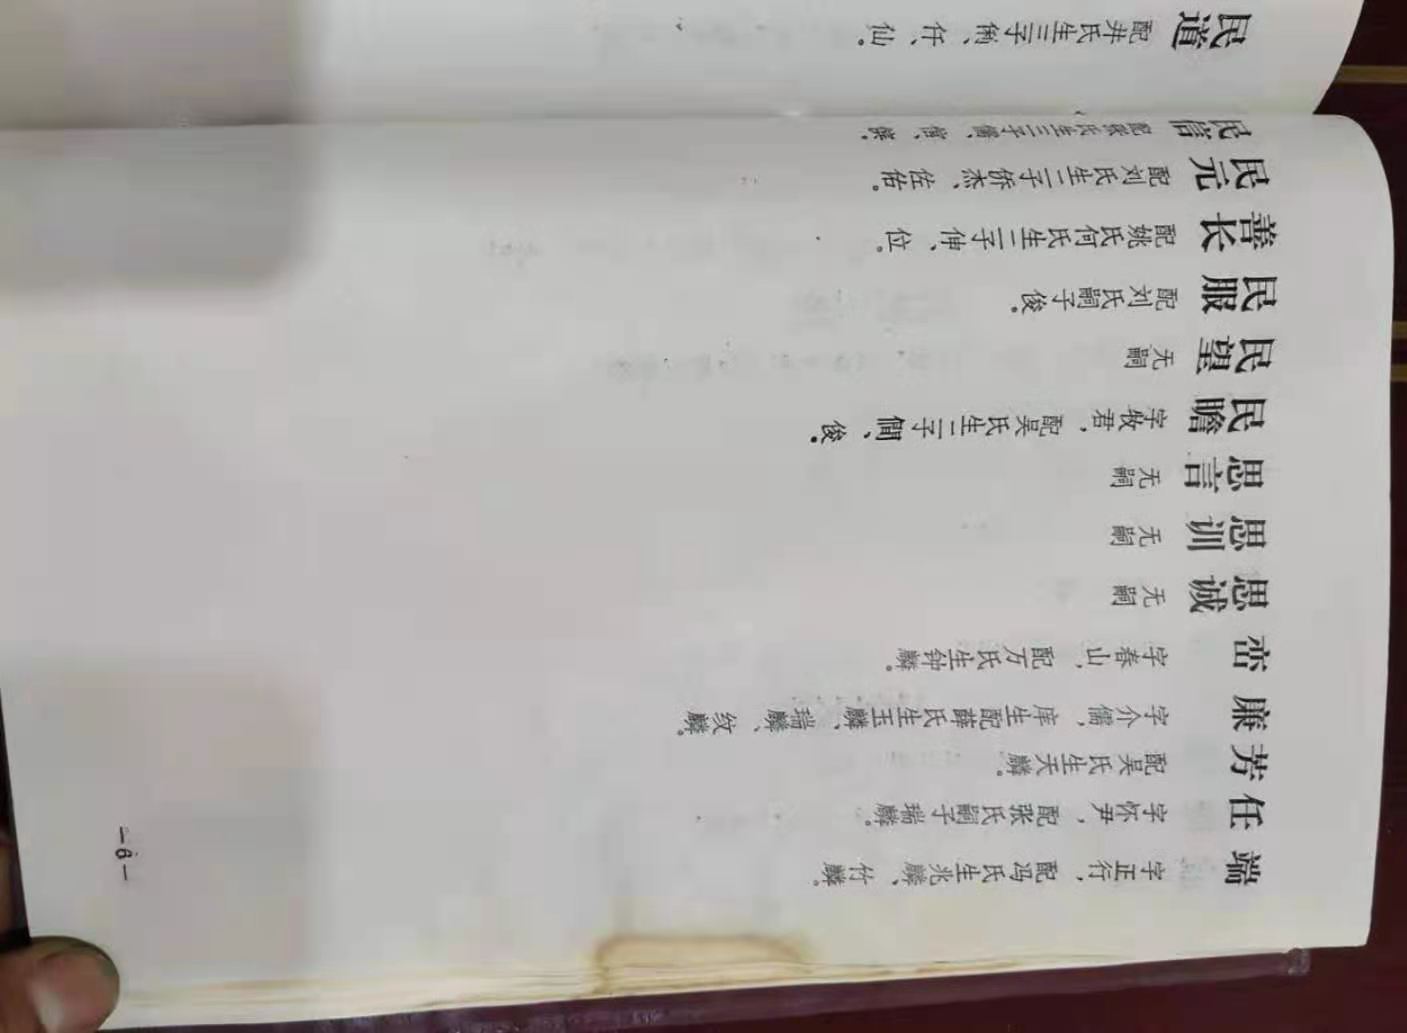 端 字正行，配冯氏生兆麟、竹麟。
任 字怀尹，配张氏嗣子瑞麟。
芳 配吴氏生天麟。
廉 字介儒，庠生配薛氏生玉麟、瑞麟、纹麟。
峦 字春山，配万氏生钟麟。
思诚 无嗣
思训 无嗣
思言 无嗣
民瞻 字牧君，配吴氏生二子僩、俊。
民望 无嗣
民服 配刘氏嗣子俊。
善长 配姚氏何氏生二子伸、位。
民元 配刘氏生二子侨杰、佐佑。
民信 配张氏生三子
民道 配井氏生三子 仟、仙。
—6—